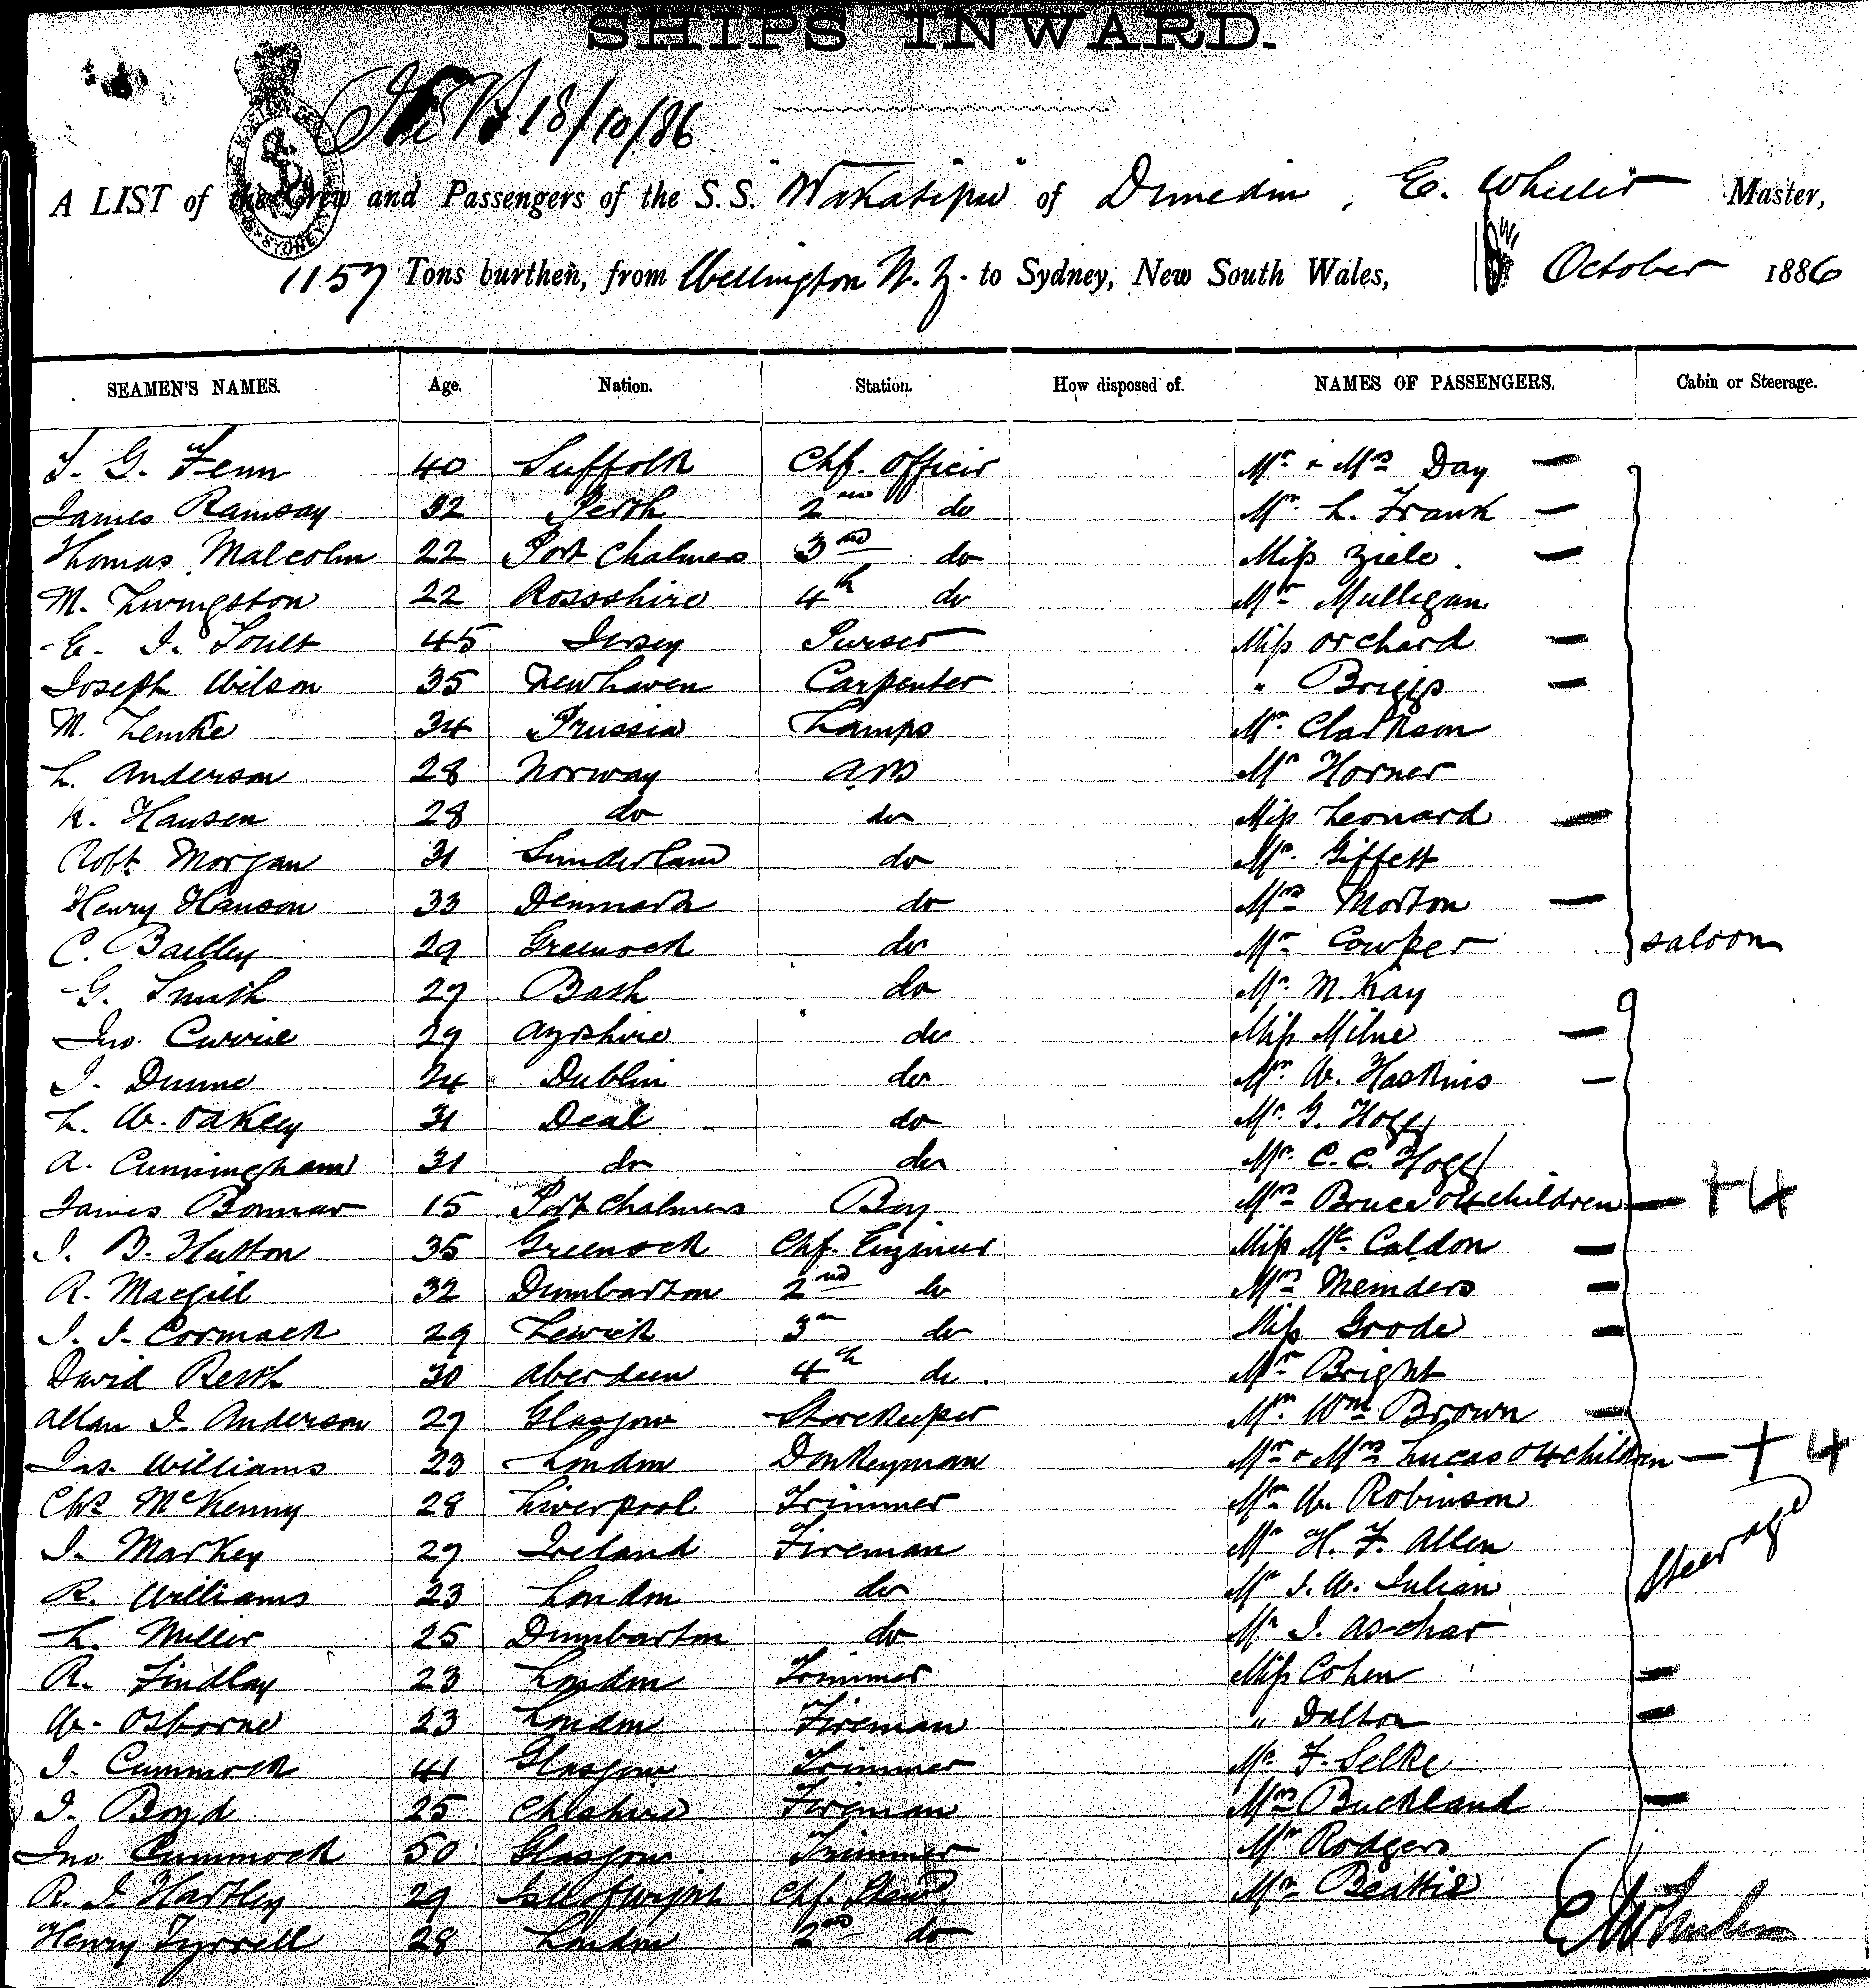 SHIPS INWARD.
18/10/86
A LIST of the Crew and Passengers of the S.S. "Wakatipu" of Dunedin, E. Wheeler Master,
1157 Tons burthen, from Wellington N.Z. to Sydney, New South Wales, October 1886
SEAMEN'S NAMES. Age. Nation. Station. How disposed of. NAMES OF PASSENGERS. Cabin or Steerage.
J. G. Fenn 40 Suffolk Chf. Officer Mr & Mrs Day —
James Ramsay 32 Perth 2nd do Mr. L. Frank —
Thomas Malcolm 22 Port Chalmers 3rd do Miss Ziele. —
M. Livingston 22 Rossshire 4th do Mr Mulligan
E. J. 45 Jersey Purser Miss Orchard —
Joseph Wilson 35 Newhaven Carpenter " Briggs —
M. Lemke 34 Prussia Lamps Mr. Clarkson
L. Anderson 28 Norway AB Mr Horner
K. Hansen 28 do do Miss Leonard —
Robt Morgan 31 Sunderland do Mr. Giffett
Henry Hanson 33 Denmark do Mrs Morton —
C. Bailley 29 Greenock do Mr Cowper saloon
G. Smith 27 Bath do Mr. M. Kay
Jno. Currie 29 Ayrshire do Miss Milne —
J. Dunne 24 Dublin do Mr W. Haskins —
L. W. Oakley 31 Deal do Mr. G. Hogg
A. Cunningham 31 do do Mr. C. C. Hogg
James Bonnar 15 Port Chalmers Boy. Mrs Bruce & 4 children — +4
J. B. Hutton 35 Greenock Chf. Engineer Miss Mc. Caldon —
R. Macgill 32 Dumbarton 2nd do Mrs Meinders —
J. J. Cormack 29 Lerwick 3rd do Miss Grode —
David Perth 30 Aberdeen 4th do. Mr Bright
Allan J. Anderson 27 Glasgow Storekeeper Mr. Wm Brown —
Jas. Williams 23 London Donkeyman Mr & Mrs Lucas & 4 children — +4
Chs McKenny 28 Liverpool Trimmer Mr W. Robinson
J. Markey 27 Ireland Fireman Mr H. F. Allen
R. Williams 23 London do Mr J. W. Julian Steerage
L. Miller 25 Dumbarton do Mr J. Aschar
R. Findlay 23 London Trimmer Miss Cohen —
W. Osborne 23 London Fireman " Dalton —
J. Cummock 41 Glasgow Trimmer Mr F. Selke
J. Boyd 25 Cheshire Fireman Mrs Buckland —
Jno Cummock 50 Glasgow Trimmer Mr Rodgers
R. J. Hartley 29 Chf. Stewd Mr Beattie
Henry Tyrrell 28 London 2nd do